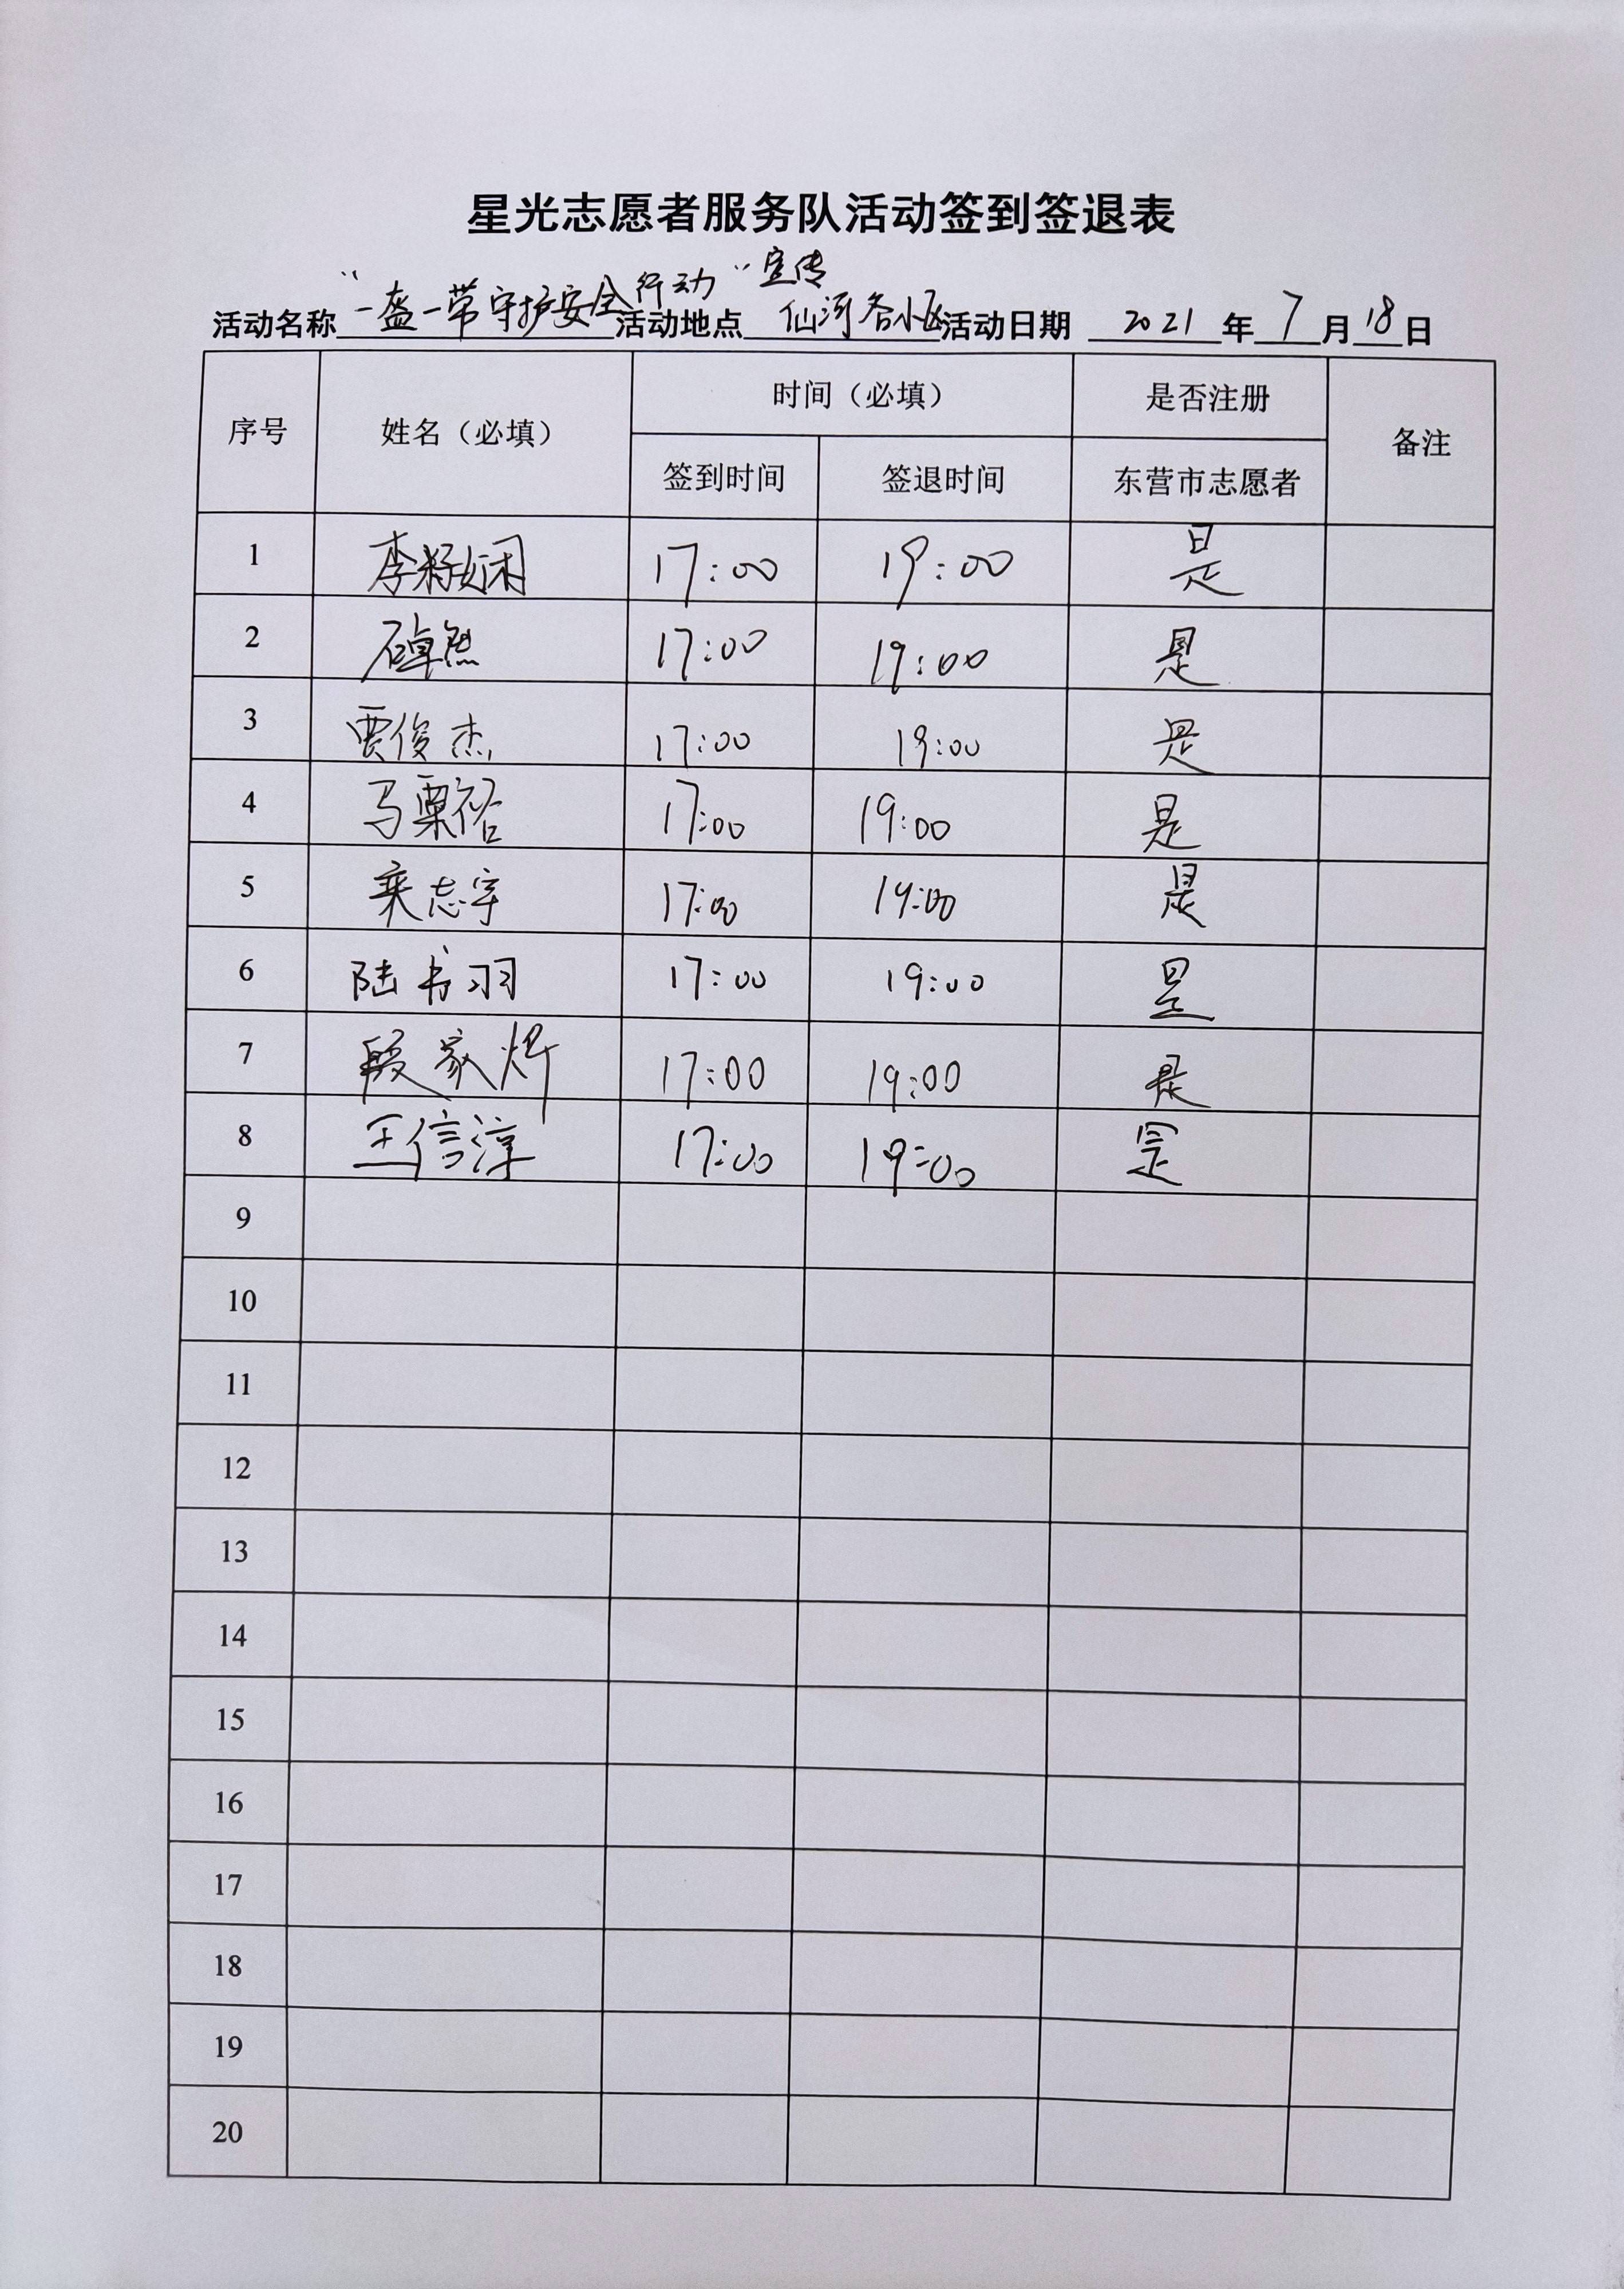 星光志愿者服务队活动签到签退表
活动名称 “一盔一带守护安全行动”宣传 活动地点 仙河各小区 活动日期 2021 年 7 月 18 日
序号 姓名（必填） 时间（必填） 是否注册 备注
签到时间 签退时间 东营市志愿者
1 李籽娴 17:00 19:00 是
2 石卓然 17:00 19:00 是
3 贾俊杰 17:00 19:00 是
4 马粟裕 17:00 19:00 是
5 志宇 17:00 19:00 是
6 陆书羽 17:00 19:00 是
7 段家烨 17:00 19:00 是
8 王信淳 17:00 19:00 是
9
10
11
12
13
14
15
16
17
18
19
20